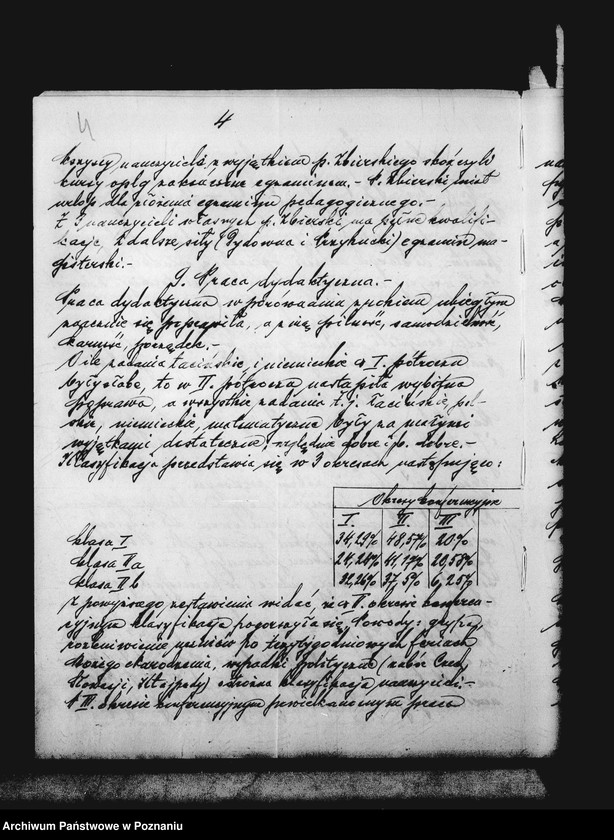 4
4
nauczyciele z wyjątkiem p. Zbierskiego skończyli
kursy oplg zakończone egzaminem.- P. Zbierski miał
urlop dla złożenia egzaminu pedagogicznego.-
Z 3 nauczycieli własnych p. Zbierski ma pełne kwalifi-
kacje, 2 dalsze siły (Dydówna i Krzykucki) egzamin ma-
gisterski.-
J. Praca dydaktyczna.-
Praca dydaktyczna w porównaniu z rokiem ubiegłym
znacznie się poprawiła, a z nią pilność, samodzielność,
karność, porządek.-
O ile zadania łacińskie i niemieckie w I. półroczu
były słabe, to w II. półroczu nastąpiła wybitna
poprawa, a wszystkie zadania t. j. łacińskie, pol-
skie, niemieckie, matematyczne były za małymi
wyjątkami dostateczne, względnie dobre i b. dobre.-
Klasyfikacja przedstawia się w 3 okresach następująco:
Okresy konferencyjne
I. II. III
klasa I 34,29% 48,57% 20%
klasa II a 24,24% 41,17% 20,58%
klasa II b 32,26% 37,5% 6,25%
Z powyższego zestawienia widać, że w II. okresie konferen-
cyjnym klasyfikacja pogorszyła się. Powody: grypa,
rozleniwienie uczniów po trzytygodniowych feriach
Bożego Narodzenia, wypadki polityczne (zabór Czech,
Słowacji, Kłajpedy) ostrożna klasyfikacja nauczycieli.-
W III. okresie konferencyjnym praca
Archiwum Państwowe w Poznaniu